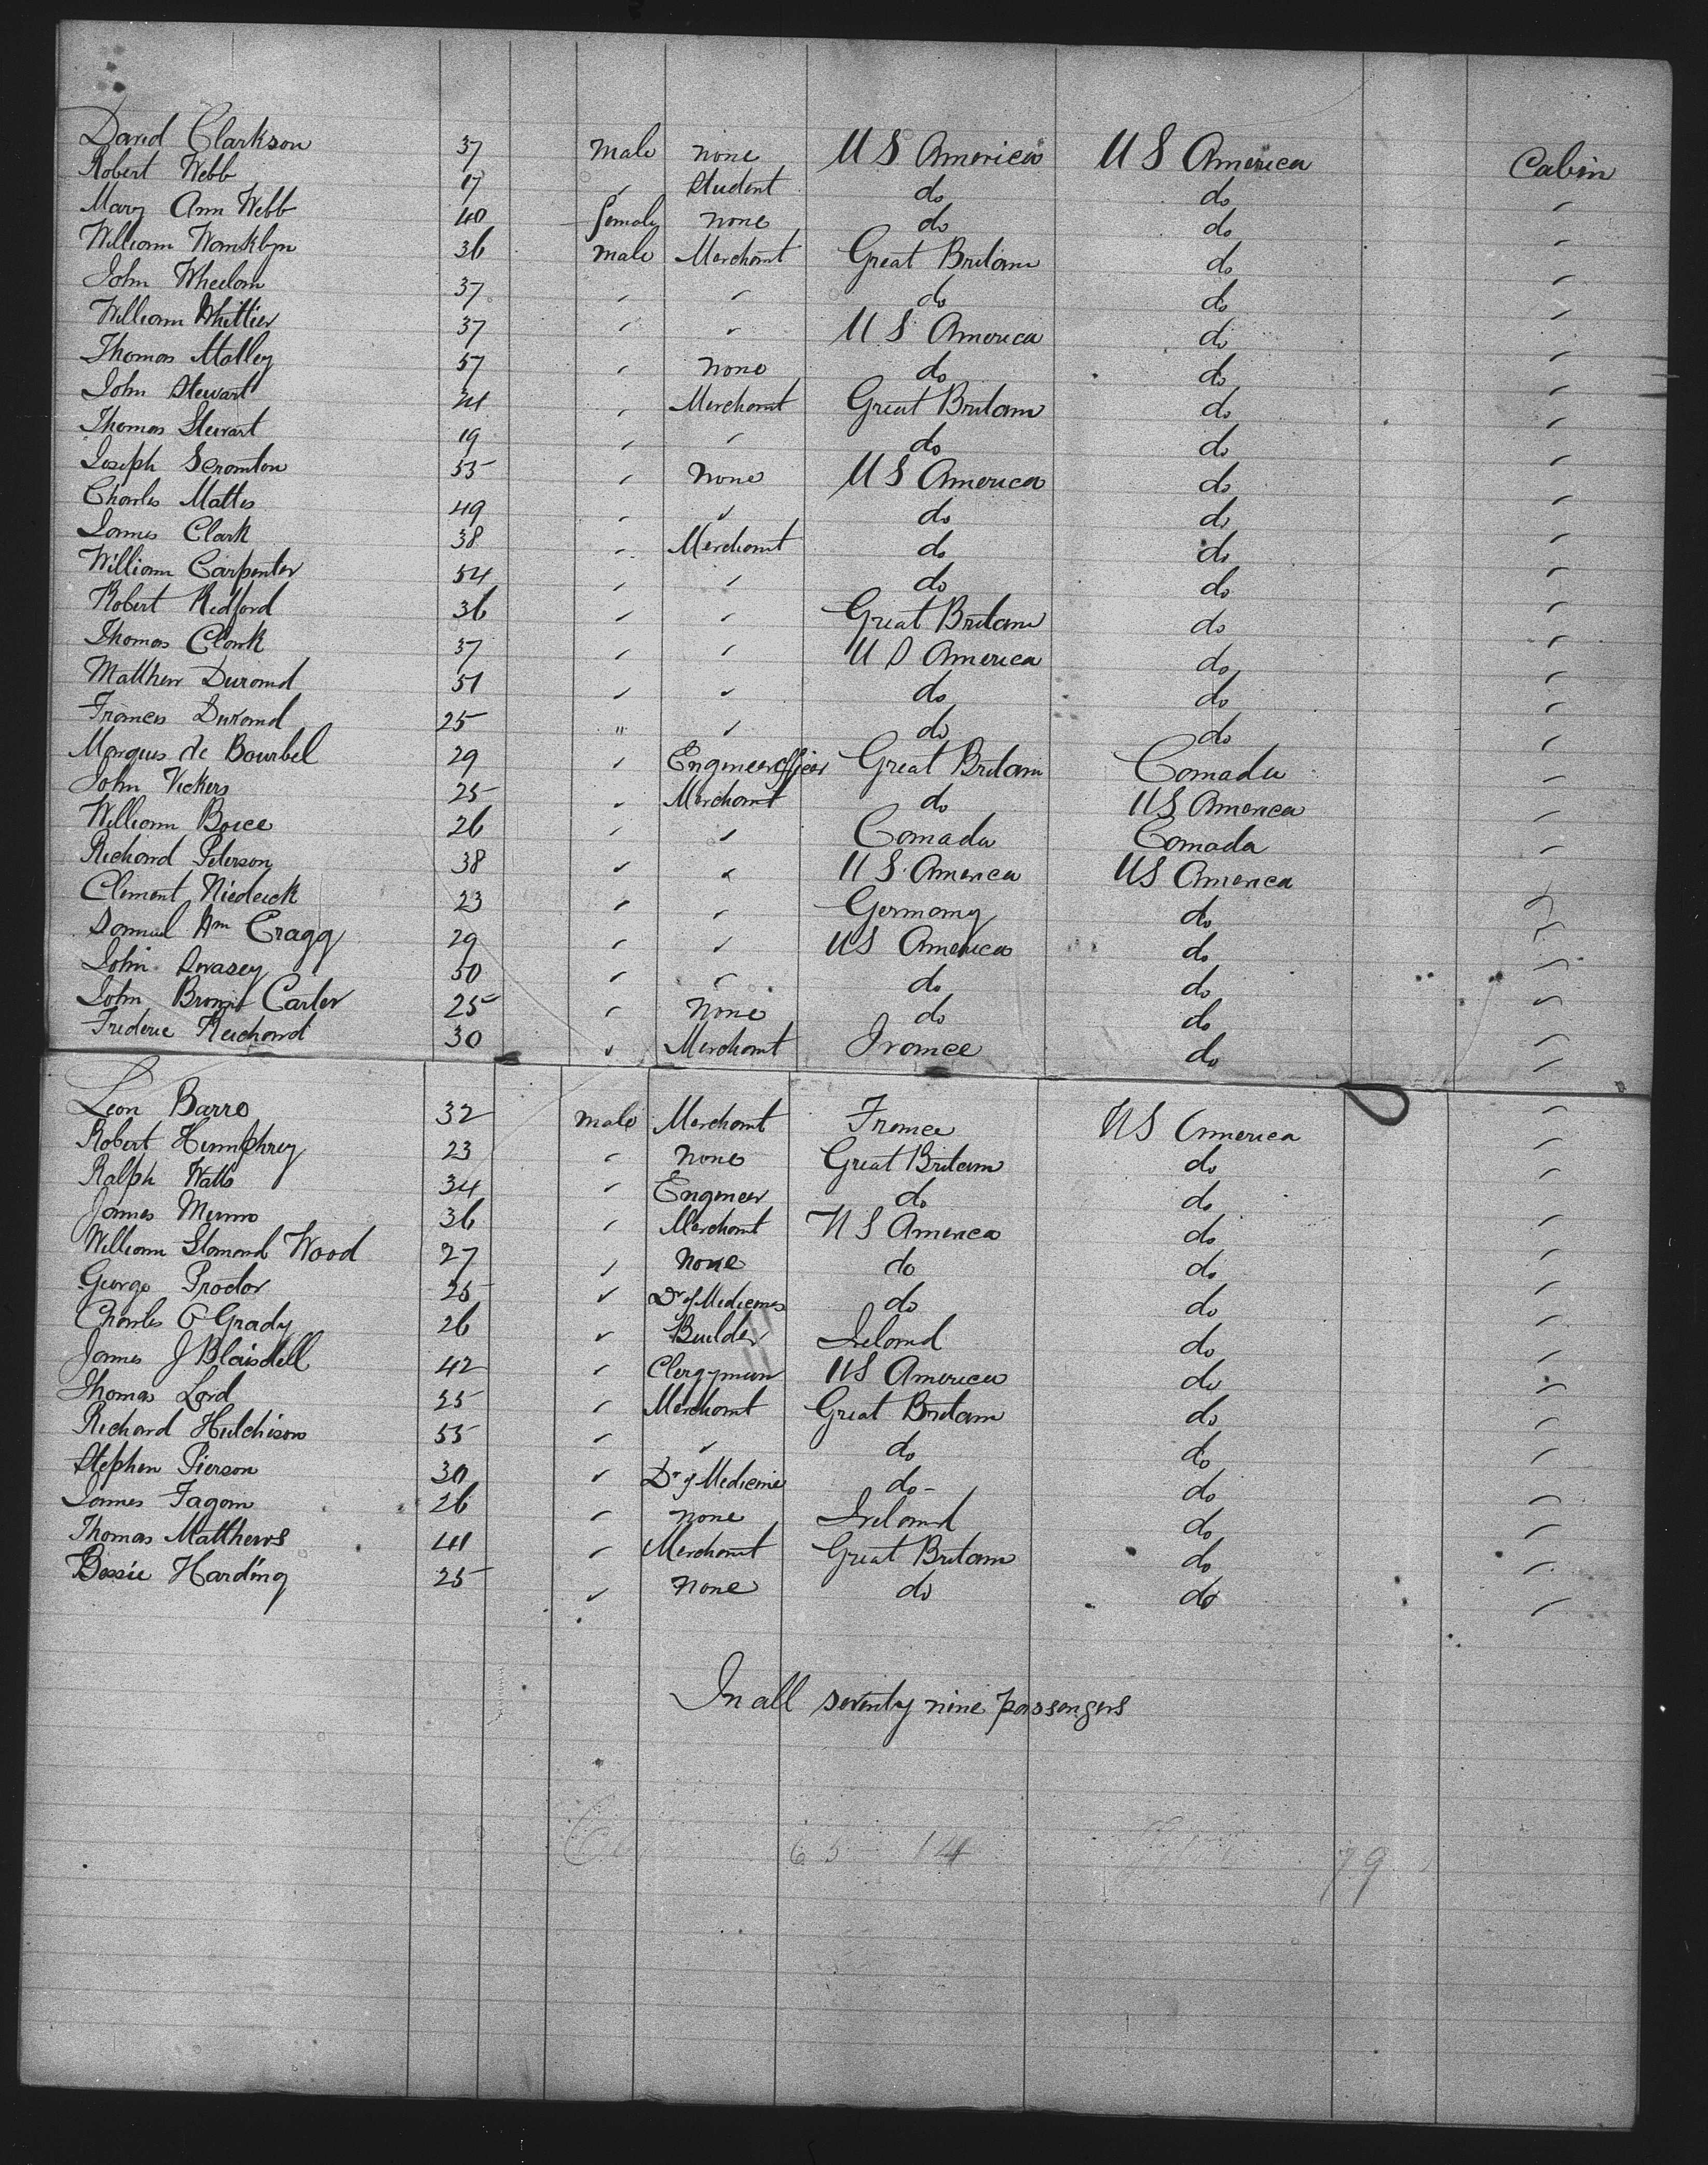 David Clarkson 37 male none U S America U S America Cabin
Robert Webb 17 " Student do do "
Mary Ann Webb 40 female none do do "
William Wanklyn 36 male Merchant Great Britain do "
John Wheelan 37 " " do do "
William Whittier 37 " " U S America do "
Thomas Malley 57 " none do do "
John Stewart 24 " Merchant Great Britain do "
Thomas Stewart 19 " " do do "
Joseph Scranton 55 " none U S America do "
Charles Mattes 49 " " do do "
James Clark 38 " Merchant do do "
William Carpenter 54 " " do do "
Robert Redford 36 " " Great Britain do "
Thomas Clark 37 " " U S America do "
Matthew Durand 51 " " do do "
Frances Durand 25 " " do do "
Marquis de Bourbel 29 " Engineer officer Great Britain Canada "
John Vickers 25 " Merchant do US America "
William Boice 26 " " Canada Canada "
Richard Peterson 38 " " U S America US America "
Clement Niedieck 23 " " Germany do "
Samuel Wm Cragg 29 " " US America do "
John 50 " " do do "
John Carter 25 " none do do "
Frederic Reichard 30 " Merchant France do "
Leon Barre 32 male Merchant France US America "
Robert Humphrey 23 " none Great Britain do "
Ralph Watts 34 " Engineer do do "
James Munro 36 " Merchant U S America do "
William Wood 27 " none do do "
George Proctor 25 " Dr of Medicines do do "
Charles O Grady 26 " Builder Ireland do "
James J Blaisdell 42 " Clergyman US America do "
Thomas Lord 25 " Merchant Great Britain do "
Richard Hutchison 55 " " do do "
Stephen Pierson 30 " Dr of Medicine do do "
James Fagan 26 " none Ireland do "
Thomas Matthews 41 " Merchant Great Britain do "
Bessie Harding 25 " none do do "
In all seventy nine passengers
65 14 79